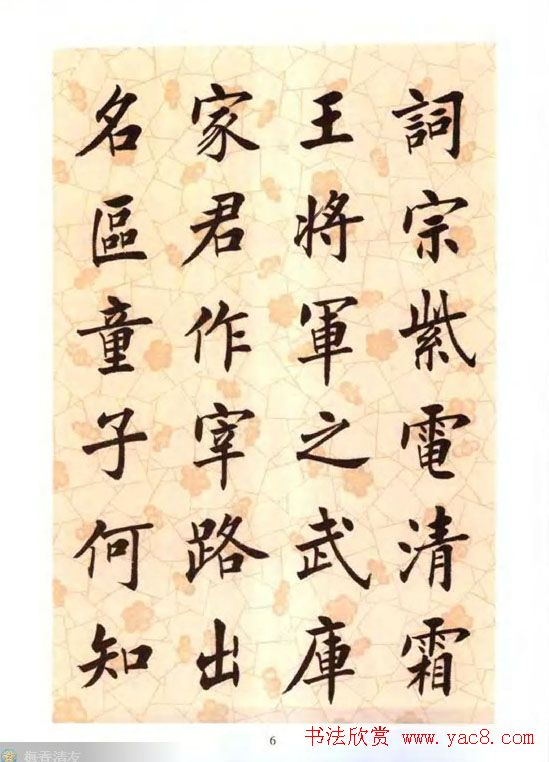 詞宗紫電清霜
王將軍之武庫
家君作宰路出
名區童子何知
6
书法欣赏 www.yac8.com
梅香清友